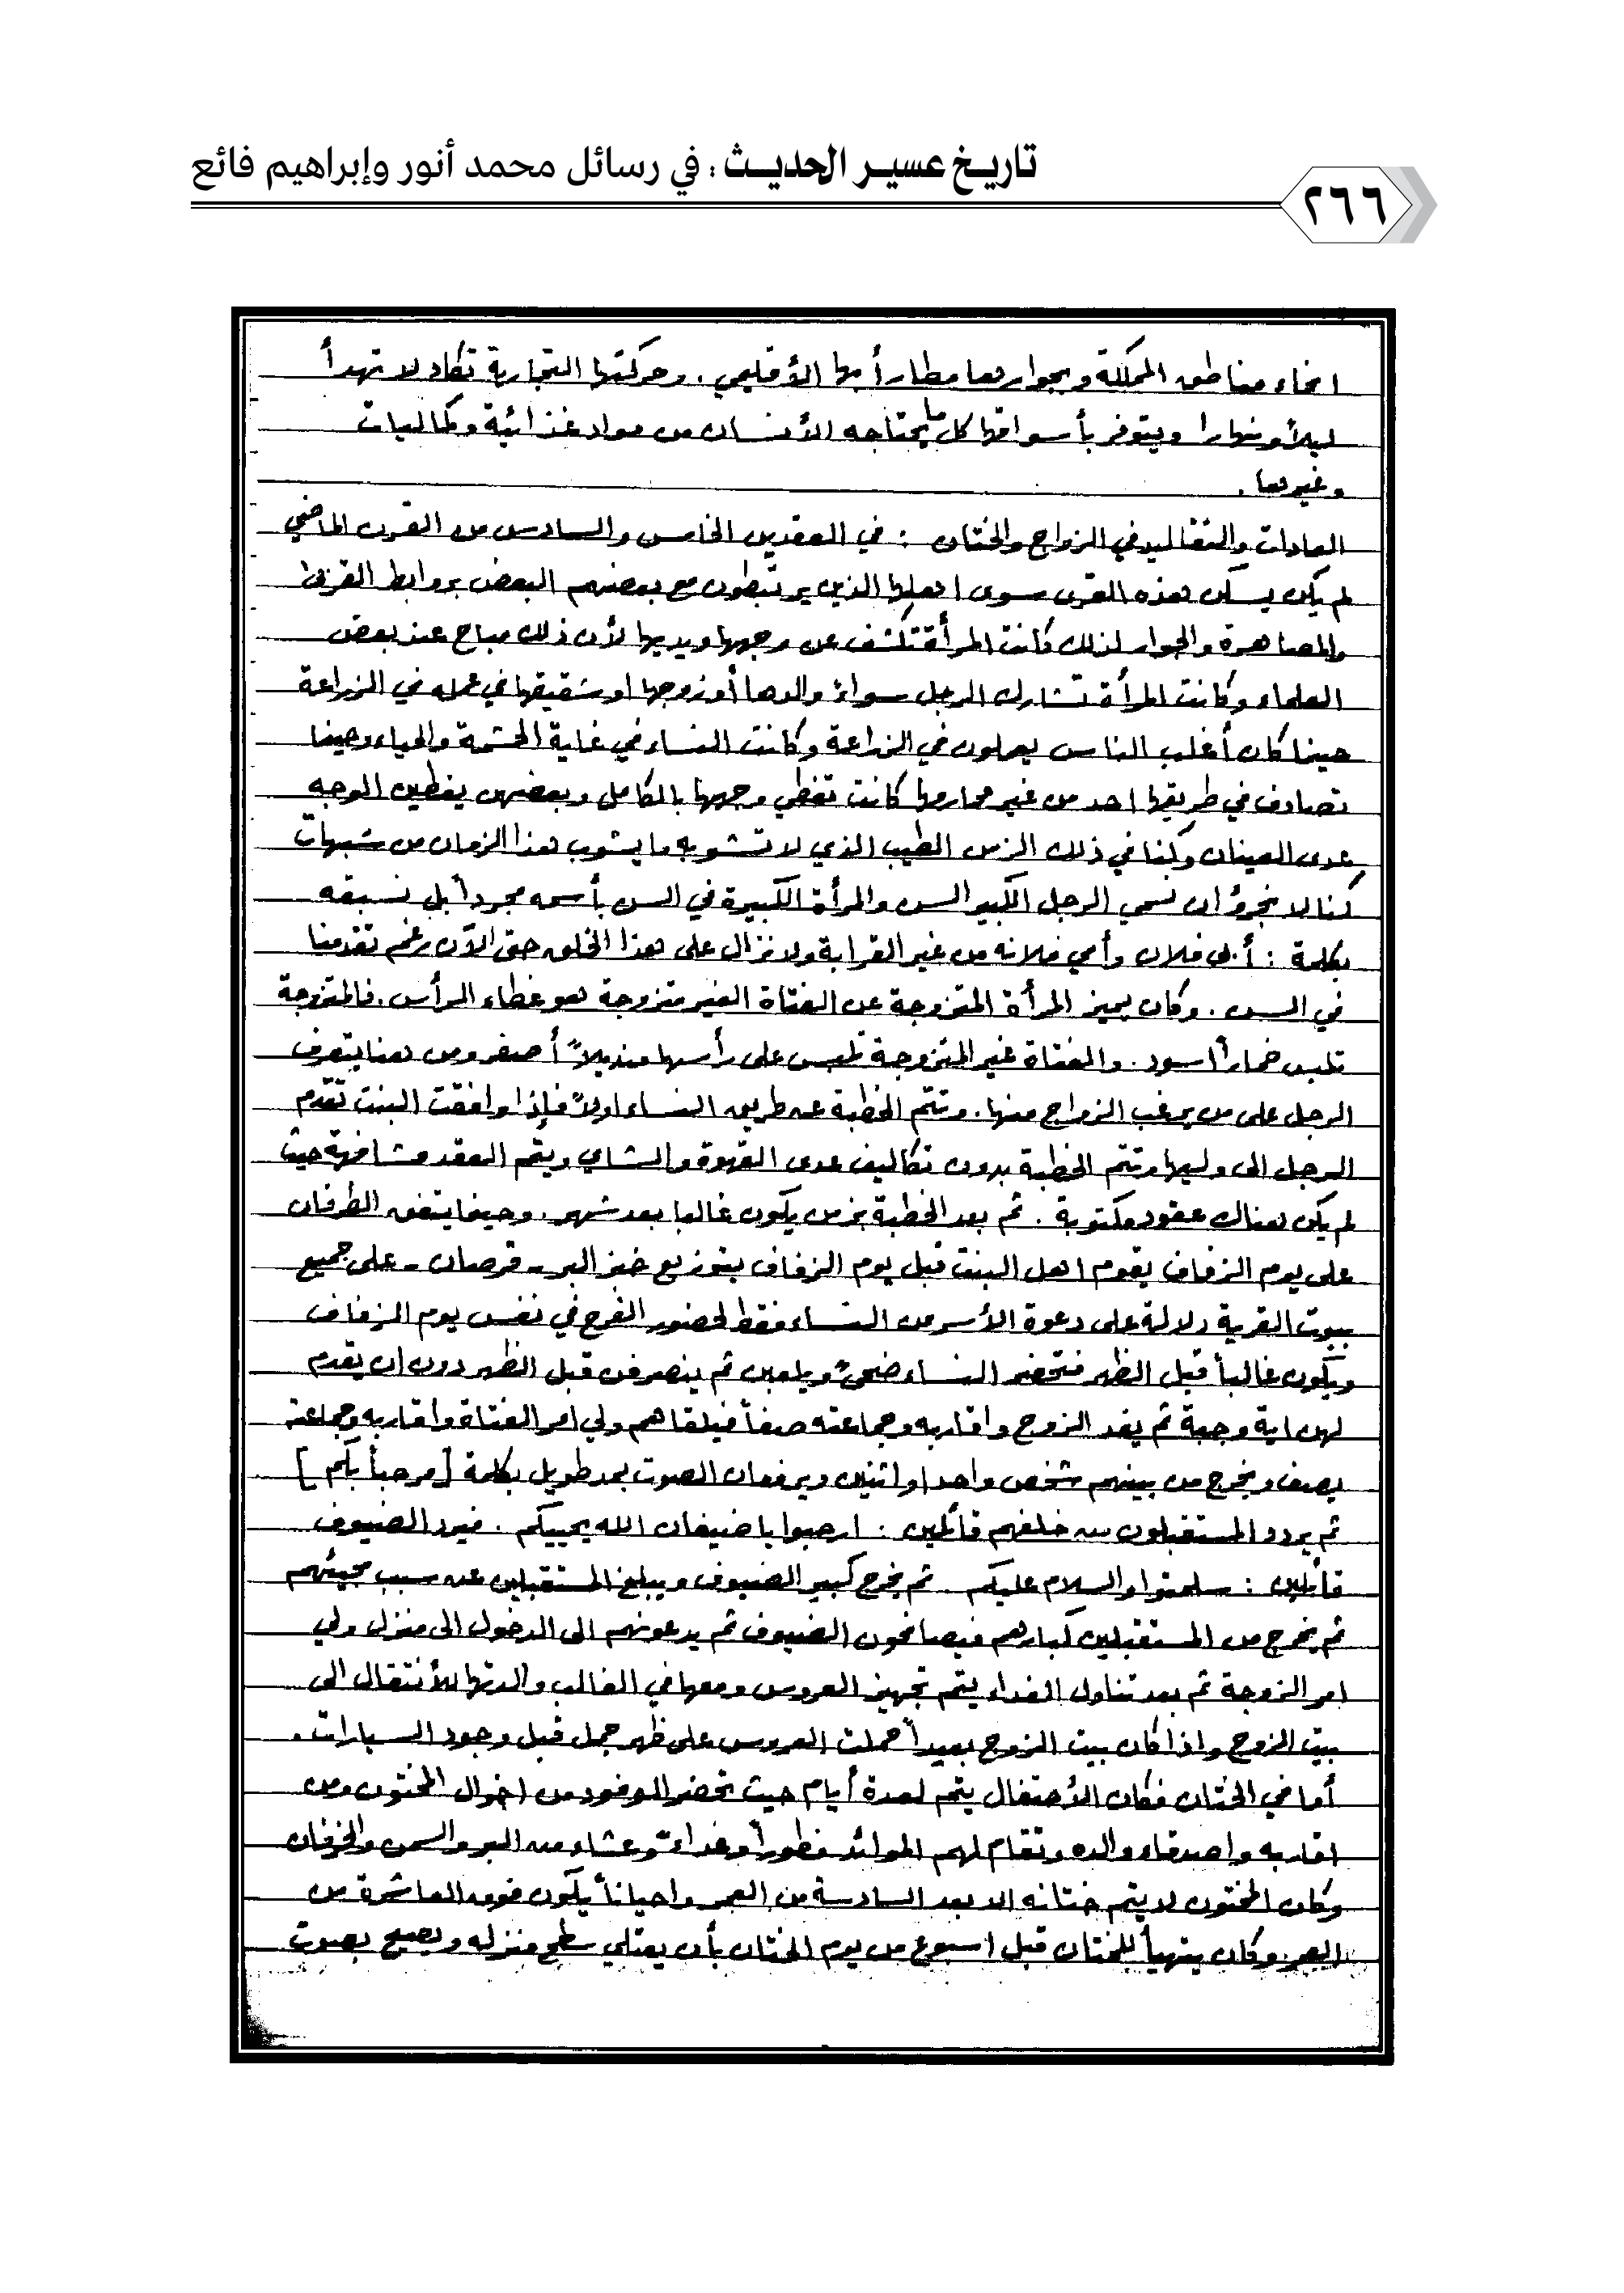 تاريخ عسير الحديث : في رسائل محمد أنور وإبراهيم فائع
٢٦٦
انحاء مناطق المملكة وبجوارها مطار أبها الأقليمي . وحركتها التجارية تكاد لا تهدأ
ليلاً ونهارا ويتوفر بأسواقها كل ما يحتاجه الأنسان من مواد غذائية وكماليات
وغيرها .
العادات والتقاليد في الزواج والختان : في العقدين الخامس والسادس من القرن الماضي
لم يكن يسكن هذه القرى سوى اهلها الذين يرتبطون مع بعضهم البعض بروابط القربى
والمصاهرة والجوار لذلك كانت المرأة تكشف عن وجهها ويديها لأن ذلك مباح عند بعض
العلماء وكانت المرأة تشارك الرجل سواءً والدها أو زوجها او شقيقها في عمله في الزراعة
حينما كان أغلب الناس يعملون في الزراعة وكانت النساء في غاية الحشمة والحياء وحينما
تصادف في طريقها احد من غير محارمها كانت تغطي وجهها بالكامل وبعضهن يغطين الوجه
عدى العينان وكنا في ذلك الزمن الطيب الذي لا تشوبه ما يشوب هذا الزمان من شبهات
كنا لا نجرؤ ان نسمي الرجل الكبير السن والمرأة الكبيرة في السن بأسمه مجرداً بل نسبقه
بكلمة : أبى فلان وأمي فلانه من غير القرابة ولا نزال على هذا الخلق حتى الآن رغم تقدمنا
في السن . وكان يميز المرأة المتزوجة عن الفتاة الغير متزوجة هو غطاء الرأس . فالمتزوجة
تلبس خماراً اسود . والفتاة غير المتزوجة تلبس على رأسها منديلاً أصفر ومن هنا يتعرف
الرجل على من يرغب الزواج منها . وتتم الخطبة عن طريق النساء اولاً فإذا وافقت البنت تقدم
الرجل الى وليها وتتم الخطبة بدون تكاليف عدى القهوة والشاي ويتم العقد مشافهة حيث
لم يكن هناك عقود مكتوبة . ثم بعد الخطبة بزمن يكون غالبا بعد شهر . وحينما يتفق الطرفان
على يوم الزفاف يقوم اهل البنت قبل يوم الزفاف بتوزيع خبز البر - قرصان - على جميع
بيوت القرية دلالة على دعوة الأسر من النساء فقط لحضور الفرح في نفس يوم الزفاف
ويكون غالباً قبل الظهر فتحضر النساء ضحىً ويلعبن ثم ينصرفن قبل الظهر دون ان يقدم
لهن اية وجبة ثم يفد الزوج واقاربه وجماعته صفاً فيلقاهم ولي امر الفتاة واقاربه وجماعته
بصف ويخرج من بينهم شخص واحد او اثنين ويرفعان الصوت بمد طويل بكلمة [ مرحباً بكم ]
ثم يردد المستقبلون من خلفهم قائلين : ارحبوا يا ضيفان الله يحييكم . فيرد الضيوف
قائلين : سلمتوا والسلام عليكم ثم يخرج كبير الضيوف ويبلغ المستقبلين عن سبب مجيئهم
ثم يخرج من المستقبلين كبارهم فيصافحون الضيوف ثم يدعونهم الى الدخول الى منزل ولي
امر الزوجة ثم بعد تناول الغداء يتم تجهيز العروس ومعها في الغالب والدتها للأنتقال الى
بيت الزوج واذا كان بيت الزوج بعيداً حملت العروس على ظهر جمل قبل وجود السيارات .
أما في الختان فكان الأحتفال يتم لعدة أيام حيث تحضر الوفود من اخوال المختون ومن
اقاربه واصدقاء والده وتقام لهم الموائد فطوراً وغداءً وعشاء من البر والسمن والخرفان
وكان المختون لا يتم ختانه الا بعد السادسة من العمر واحياناً يكون فوق العاشرة من
العمر وكان يتهيأ للختان قبل اسبوع من يوم الختان بأن يعتلي سطح منزله ويصيح بصوت